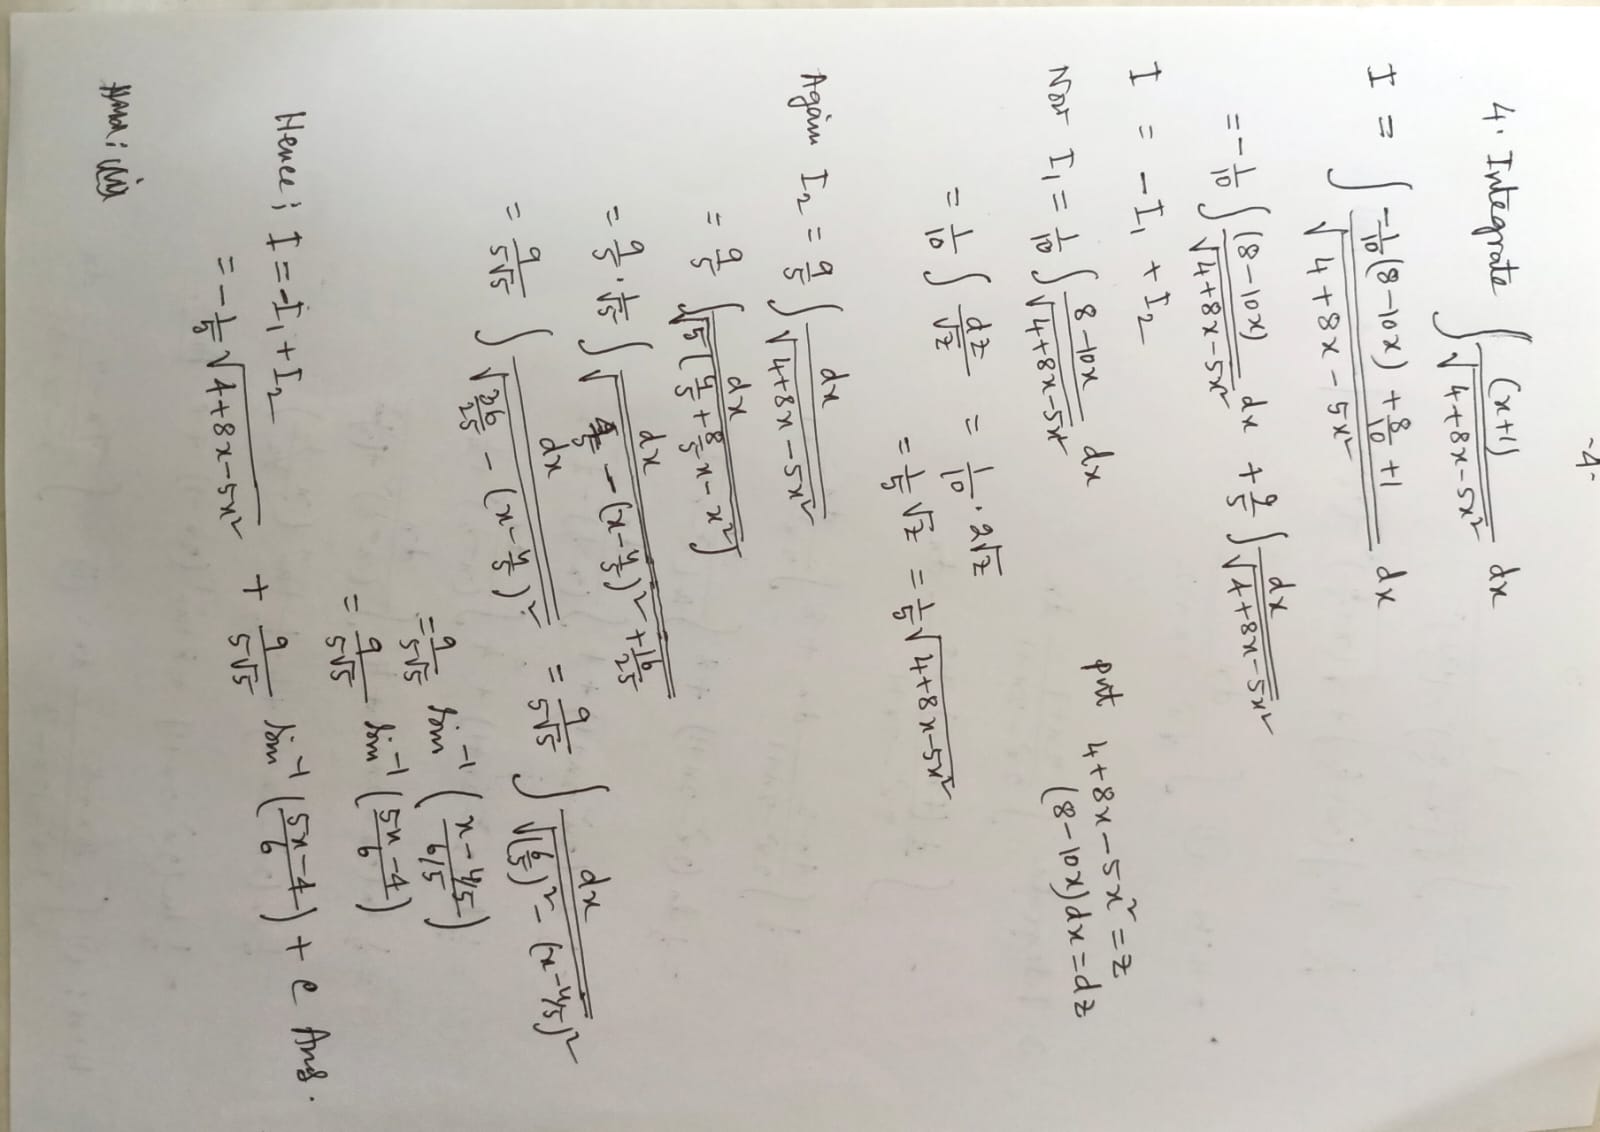 -4-
4. Integrate ∫ (x+1)/√(4+8x-5x²) dx
I = ∫ (-1/10(8-10x) + 8/10 + 1)/√(4+8x-5x²) dx
= -1/10 ∫ (8-10x)/√(4+8x-5x²) dx + 9/5 ∫ dx/√(4+8x-5x²)
I = -I₁ + I₂
Now I₁ = 1/10 ∫ (8-10x)/√(4+8x-5x²) dx put 4+8x-5x² = z
(8-10x)dx = dz
= 1/10 ∫ dz/√z = 1/10 · 2√z
= 1/5 √z = 1/5 √(4+8x-5x²)
Again I₂ = 9/5 ∫ dx/√(4+8x-5x²)
= 9/5 ∫ dx/√(5(4/5 + 8/5 x - x²))
= 9/5 · 1/√5 ∫ dx/√(4/5 - (x-4/5)² + 16/25)
= 9/(5√5) ∫ dx/√(36/25 - (x-4/5)²) = 9/(5√5) ∫ dx/√((6/5)² - (x-4/5)²)
= 9/(5√5) sin⁻¹((x-4/5)/(6/5))
= 9/(5√5) sin⁻¹((5x-4)/6)
Hence; I = -I₁ + I₂
= -1/5 √(4+8x-5x²) + 9/(5√5) sin⁻¹((5x-4)/6) + c Ans.